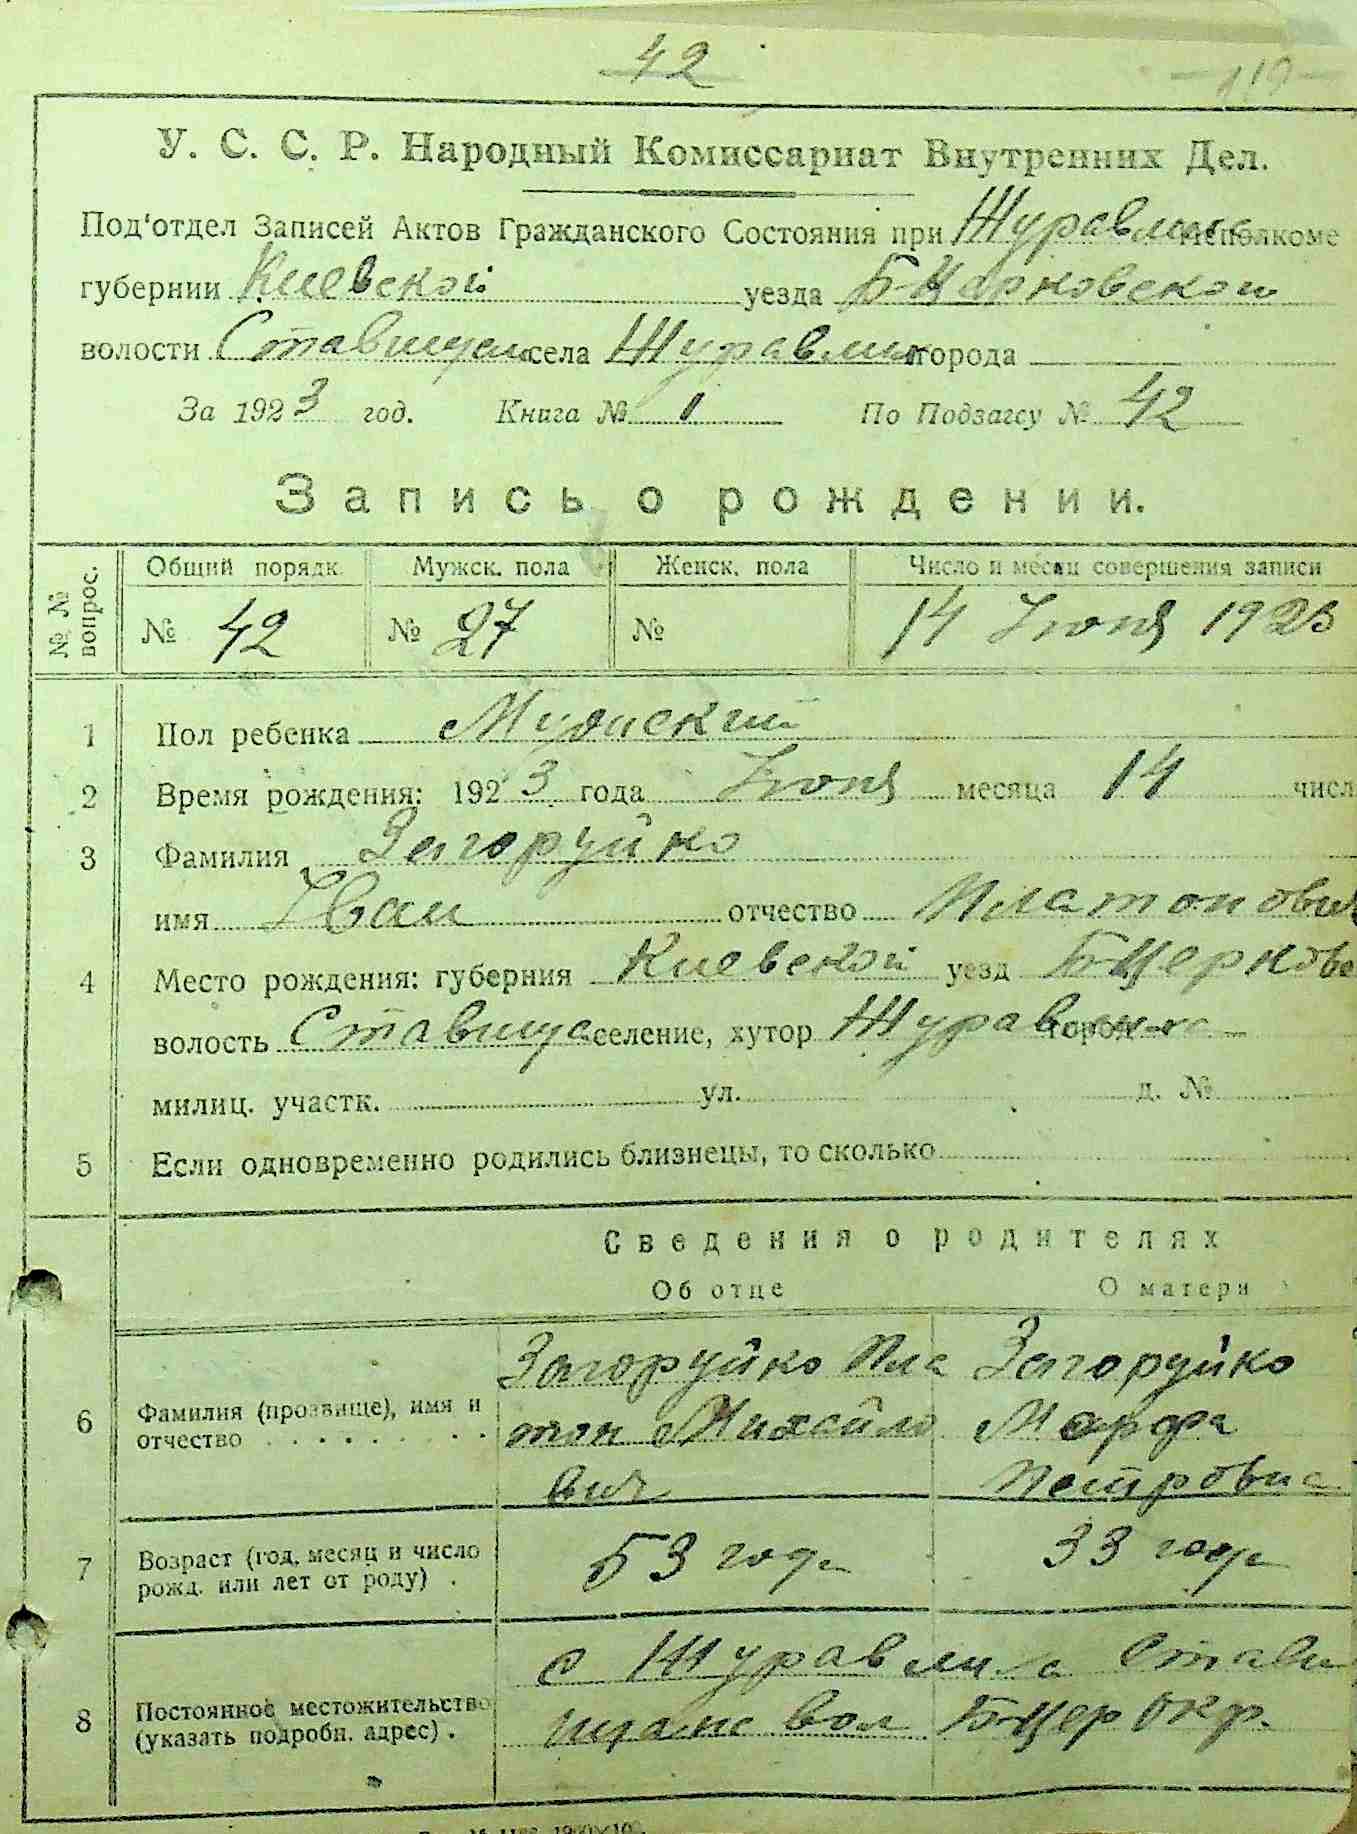 42
У. С. С. Р. Народный Комиссариат Внутренних Дел.
Под'отдел Записей Актов Гражданского Состояния при Исполкоме
губернии Киевской уезда Б-Царковской
волости села города
За 1923 год. Книга № 1 По Подзагсу № 42
Запись о рождении.
№ № вопрос. Общий порядк. Мужск. пола Женск. пола Число и месяц совершения записи
№ 42 № 27 № 14 Июня 1923
1 Пол ребенка Мужский
2 Время рождения: 1923 года Июня месяца 14 числ
3 Фамилия Загоруйко
имя Иван отчество Платонович
4 Место рождения: губерния Киевской уезд Б-Церкове
волость Ставища селение, хутор город
милиц. участк. ул. д. №
5 Если одновременно родились близнецы, то сколько
Сведения о родителях
Об отце О матери
6 Фамилия (прозвище), имя и отчество Загоруйко Пла Загоруйко
тон Михайло Марфа
вич Петровна
7 Возраст (год, месяц и число рожд. или лет от роду) . 53 года 33 года
8 Постоянное местожительство (указать подробн. адрес) . с Журавлиха Стави
щанс вол Б-Цер Окр.